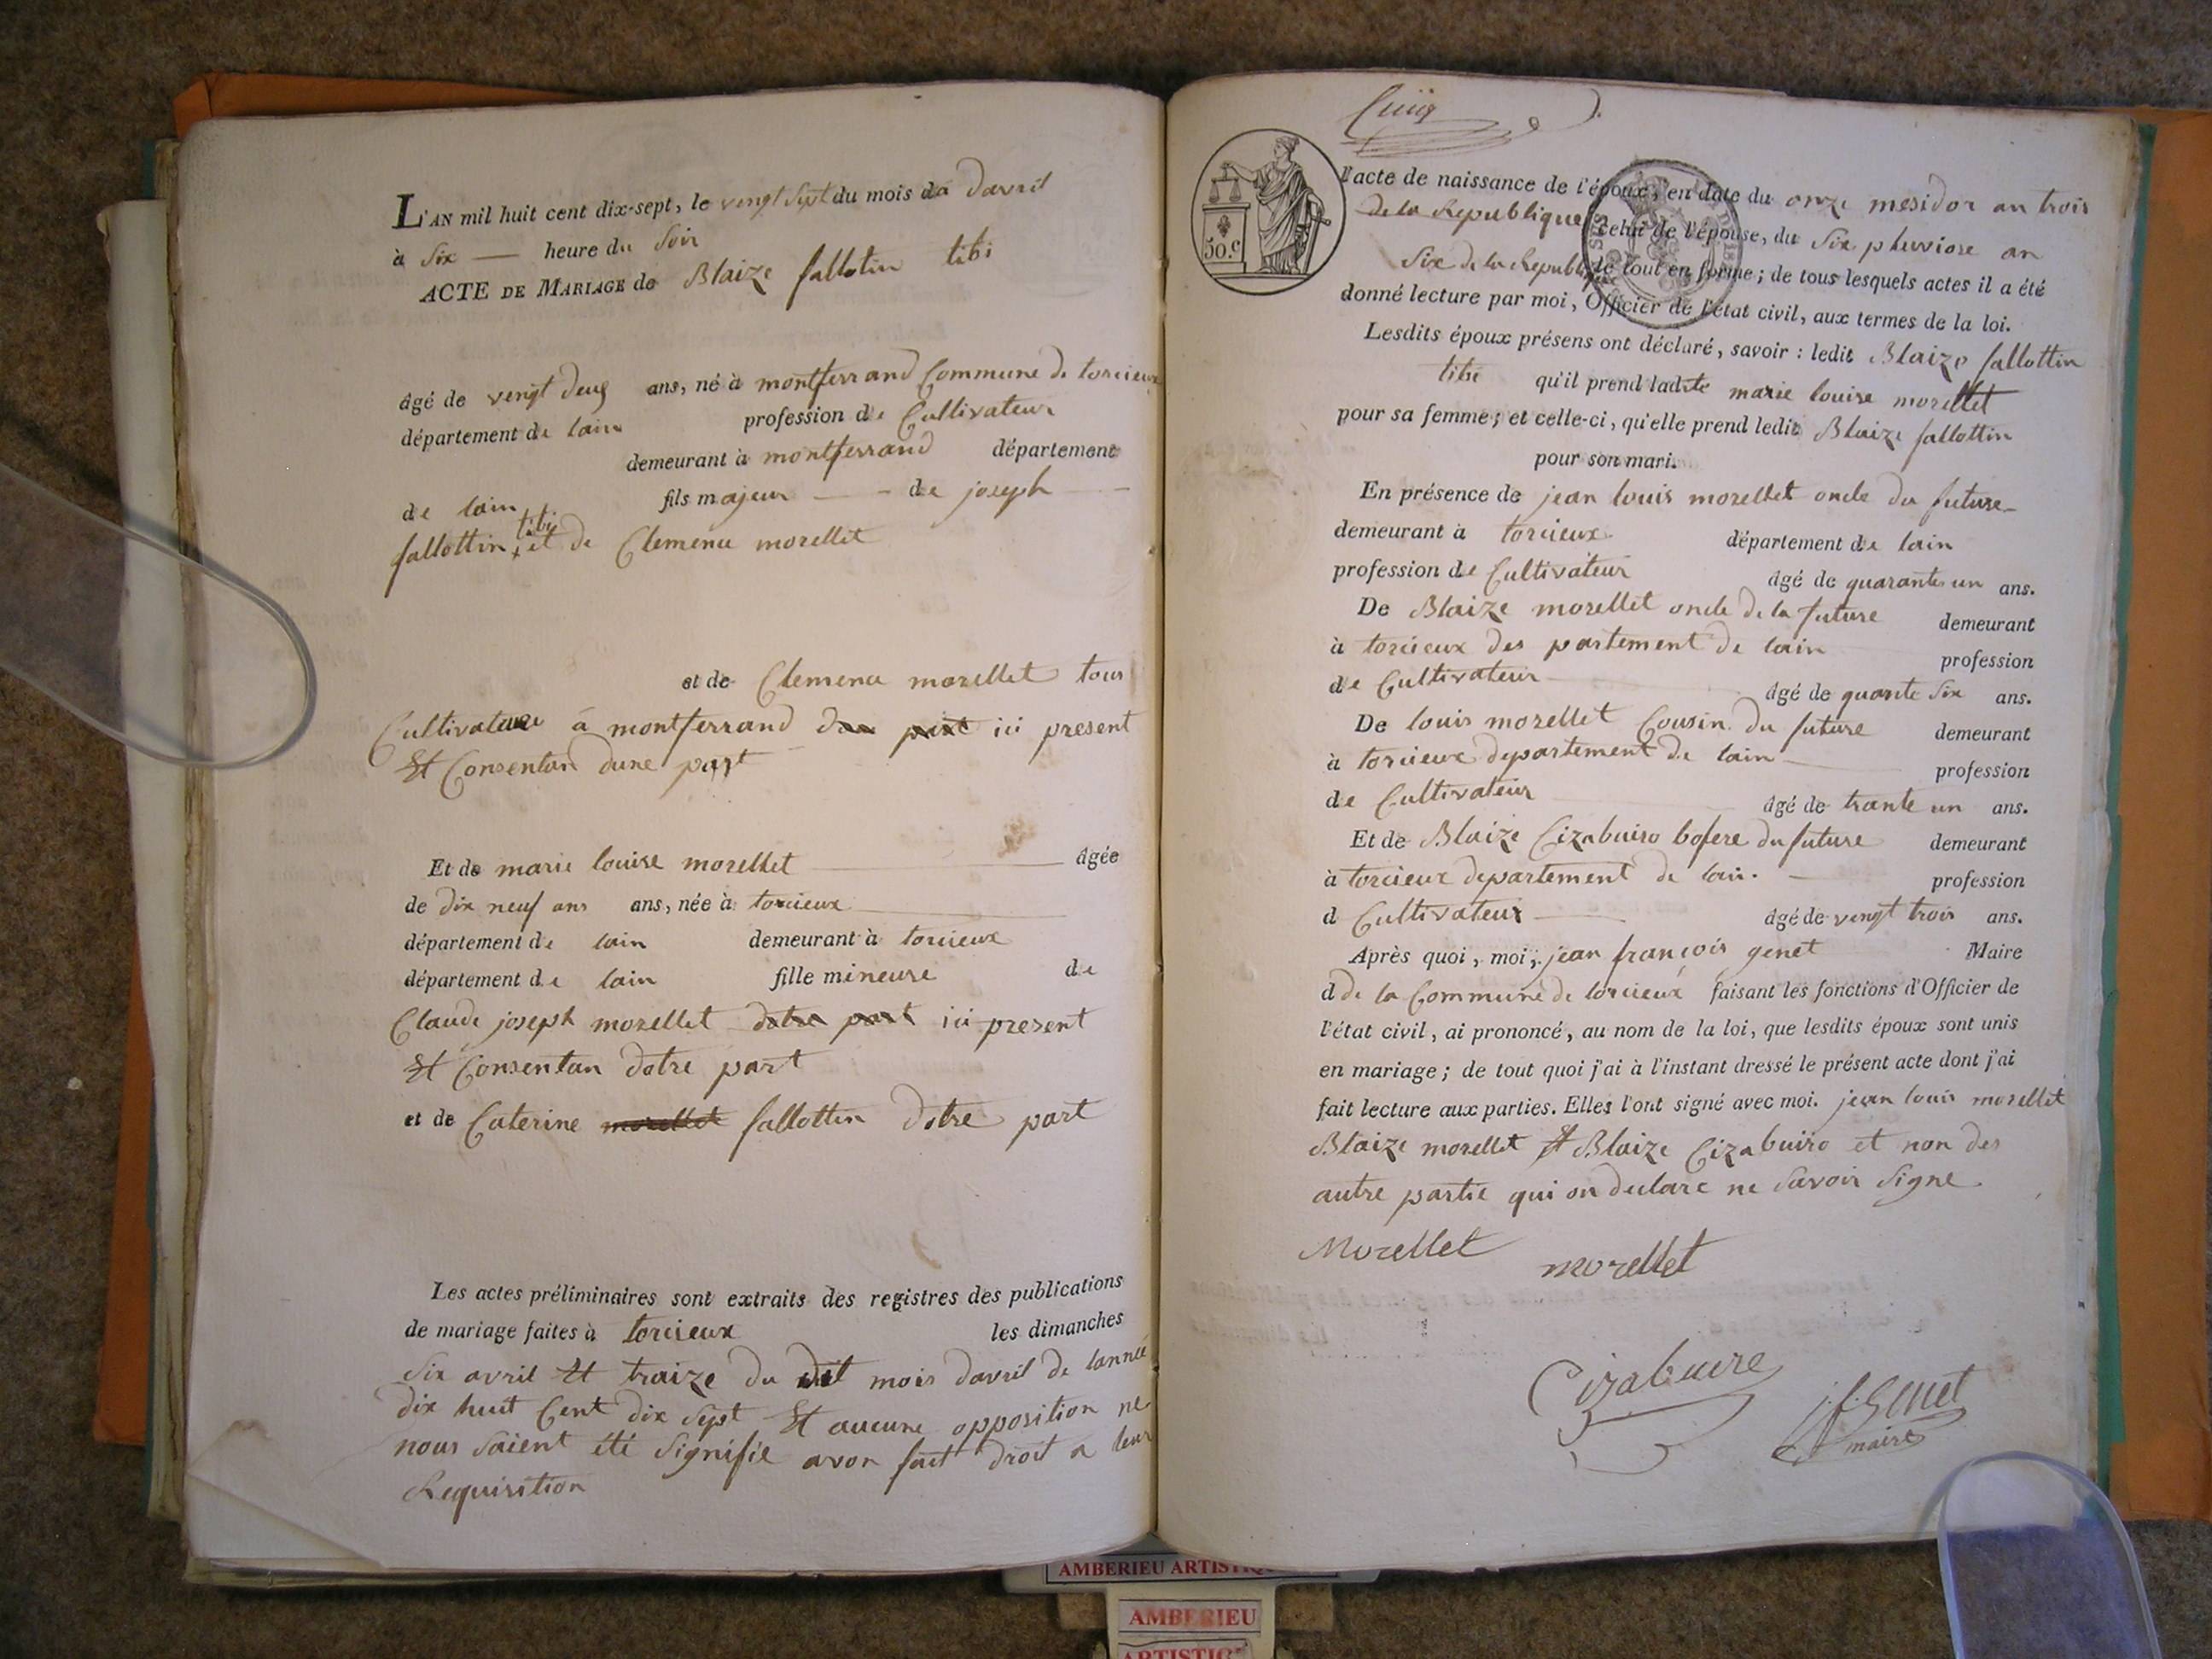 L'AN mil huit cent dix-sept, le vengt sept du mois da davril
à six heure du soir
ACTE DE MARIAGE de Blaize fallotin tibi
âgé de vengt deug ans, né à montferrand Commune de torcieux
département de lain profession de Cultivateur
demeurant à montferrand département
de lain fils majeur de joseph
fallottin tibi et de Clemence morellet
et de Clemence morellet tous
Cultivateur à montferrand ici present
Et Consentan dune part
Et de marie louise morellet âgée
de dix neuf ans ans, née à torcieux
département de lain demeurant à torcieux
département de lain fille mineure de
Claude joseph morellet dotre part ici present
Et Consentan dotre part
et de Caterine morellet fallottin dotre part
Les actes préliminaires sont extraits des registres des publications
de mariage faites à torcieux les dimanches
six avril Et traize du dit mois davril de lannée
dix huit Cent dix sept Et aucune opposition ne
nous saient été signifié avon fait droit a leur
Requisition
50.c
l'acte de naissance de l'époux, en date du onze mesidor an trois
de la Republique celui de l'épouse, du six pluviose an
six de la Republique le tout en forme; de tous lesquels actes il a été
donné lecture par moi, Officier de l'état civil, aux termes de la loi.
Lesdits époux présens ont déclaré, savoir : ledit Blaize fallottin
tibi qu'il prend ladite marie louise morellet
pour sa femme; et celle-ci, qu'elle prend ledit Blaize fallottin
pour son mari.
En présence de jean louis morellet oncle du future
demeurant à torcieux département de lain
profession de Cultivateur âgé de quarante un ans.
De Blaize morellet oncle de la future demeurant
à torcieux des partement de lain profession
de Cultivateur âgé de quarite six ans.
De louis morellet Cousin du future demeurant
à torcieux departement de lain profession
de Cultivateur âgé de trante un ans.
Et de Blaize Cizabuiro bofere du future demeurant
à torcieux departement de lain profession
d Cultivateur âgé de vengt trois ans.
Après quoi, moi, jean françois genet Maire
d de la Commune de torcieux faisant les fonctions d'Officier de
l'état civil, ai prononcé, au nom de la loi, que lesdits époux sont unis
en mariage; de tout quoi j'ai à l'instant dressé le présent acte dont j'ai
fait lecture aux parties. Elles l'ont signé avec moi. jean louis morellet
Blaize morellet Et Blaize Cizabuiro et non des
autre partie qui on declare ne savoir signe
Morellet
morellet
Cizabuire
j.f. Genet
maire
AMBERIEU
AMBERIEU